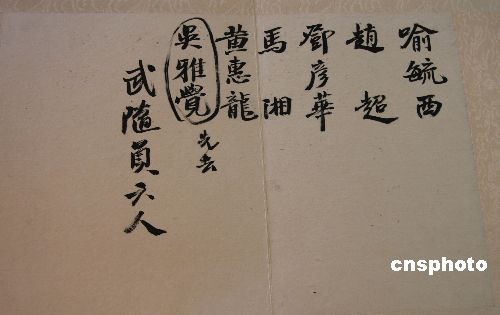 喻毓西
趙超
鄧彦華
馬湘
黄惠龍
吳雅覺先去
武隨員六人
cnsphoto